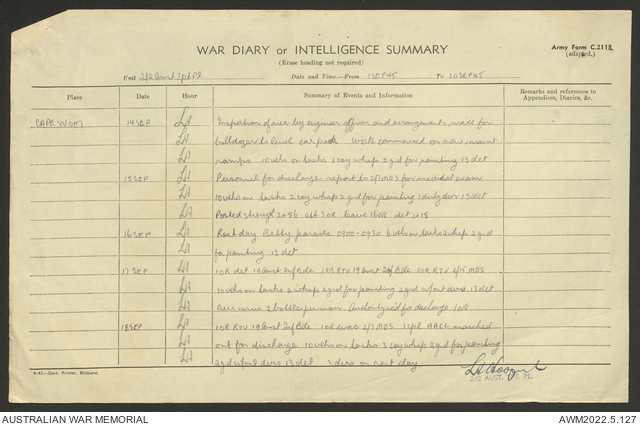 WAR DIARY or INTELLIGENCE SUMMARY
Army Form C.2118
(adapted.)
(Erase heading not required)
Unit 2/2 Aust Tpt Pl Date and Time—From 1 SEP 45 To 30 SEP 45
Place Date Hour Summary of Events and Information Remarks and references to Appendices, Diaries, &c.
CAPE WOM 14 SEP Inspection of area by engineer officer and arrangements made for
bulldozer to level car park Work commenced on new maint
ramps 10 vehs on tasks 1 coy whep 2 gd for painting 13 det
15 SEP Personnel for discharge report to 2/7 MDS for medical exam
10 vehs on tasks 2 coy whep 2 gd for painting 1 duty dvr 13 det
Posted strength 2+86 att 3 OR leave 16 OR det 1+18
16 SEP Rest day Betty parade 0900-0930 6 vehs on tasks 2 whep 2 gd
for painting 13 det
17 SEP 1 OR det 19 Aust Inf Bde 1 OR RTU 19 Aust Inf Bde 1 OR RTU 2/15 MDS
10 vehs on tasks 2 whep 2 gd for painting 2 gd w/out dvrs 13 det
Beer issue 2 bottles per man 1 OR
18 SEP 1 OR RTU 19 Aust Inf Bde 1 OR evac 2/7 MDS AASC marched
out for discharge 10 vehs on tasks 3 coy whep 2 gd for painting
2 gd w/out dvrs 13 det 3 dvrs on rest day
2/2 AUST. TPT. PL.
4-43—Govt. Printer, Brisbane.
AUSTRALIAN WAR MEMORIAL AWM2022.5.127